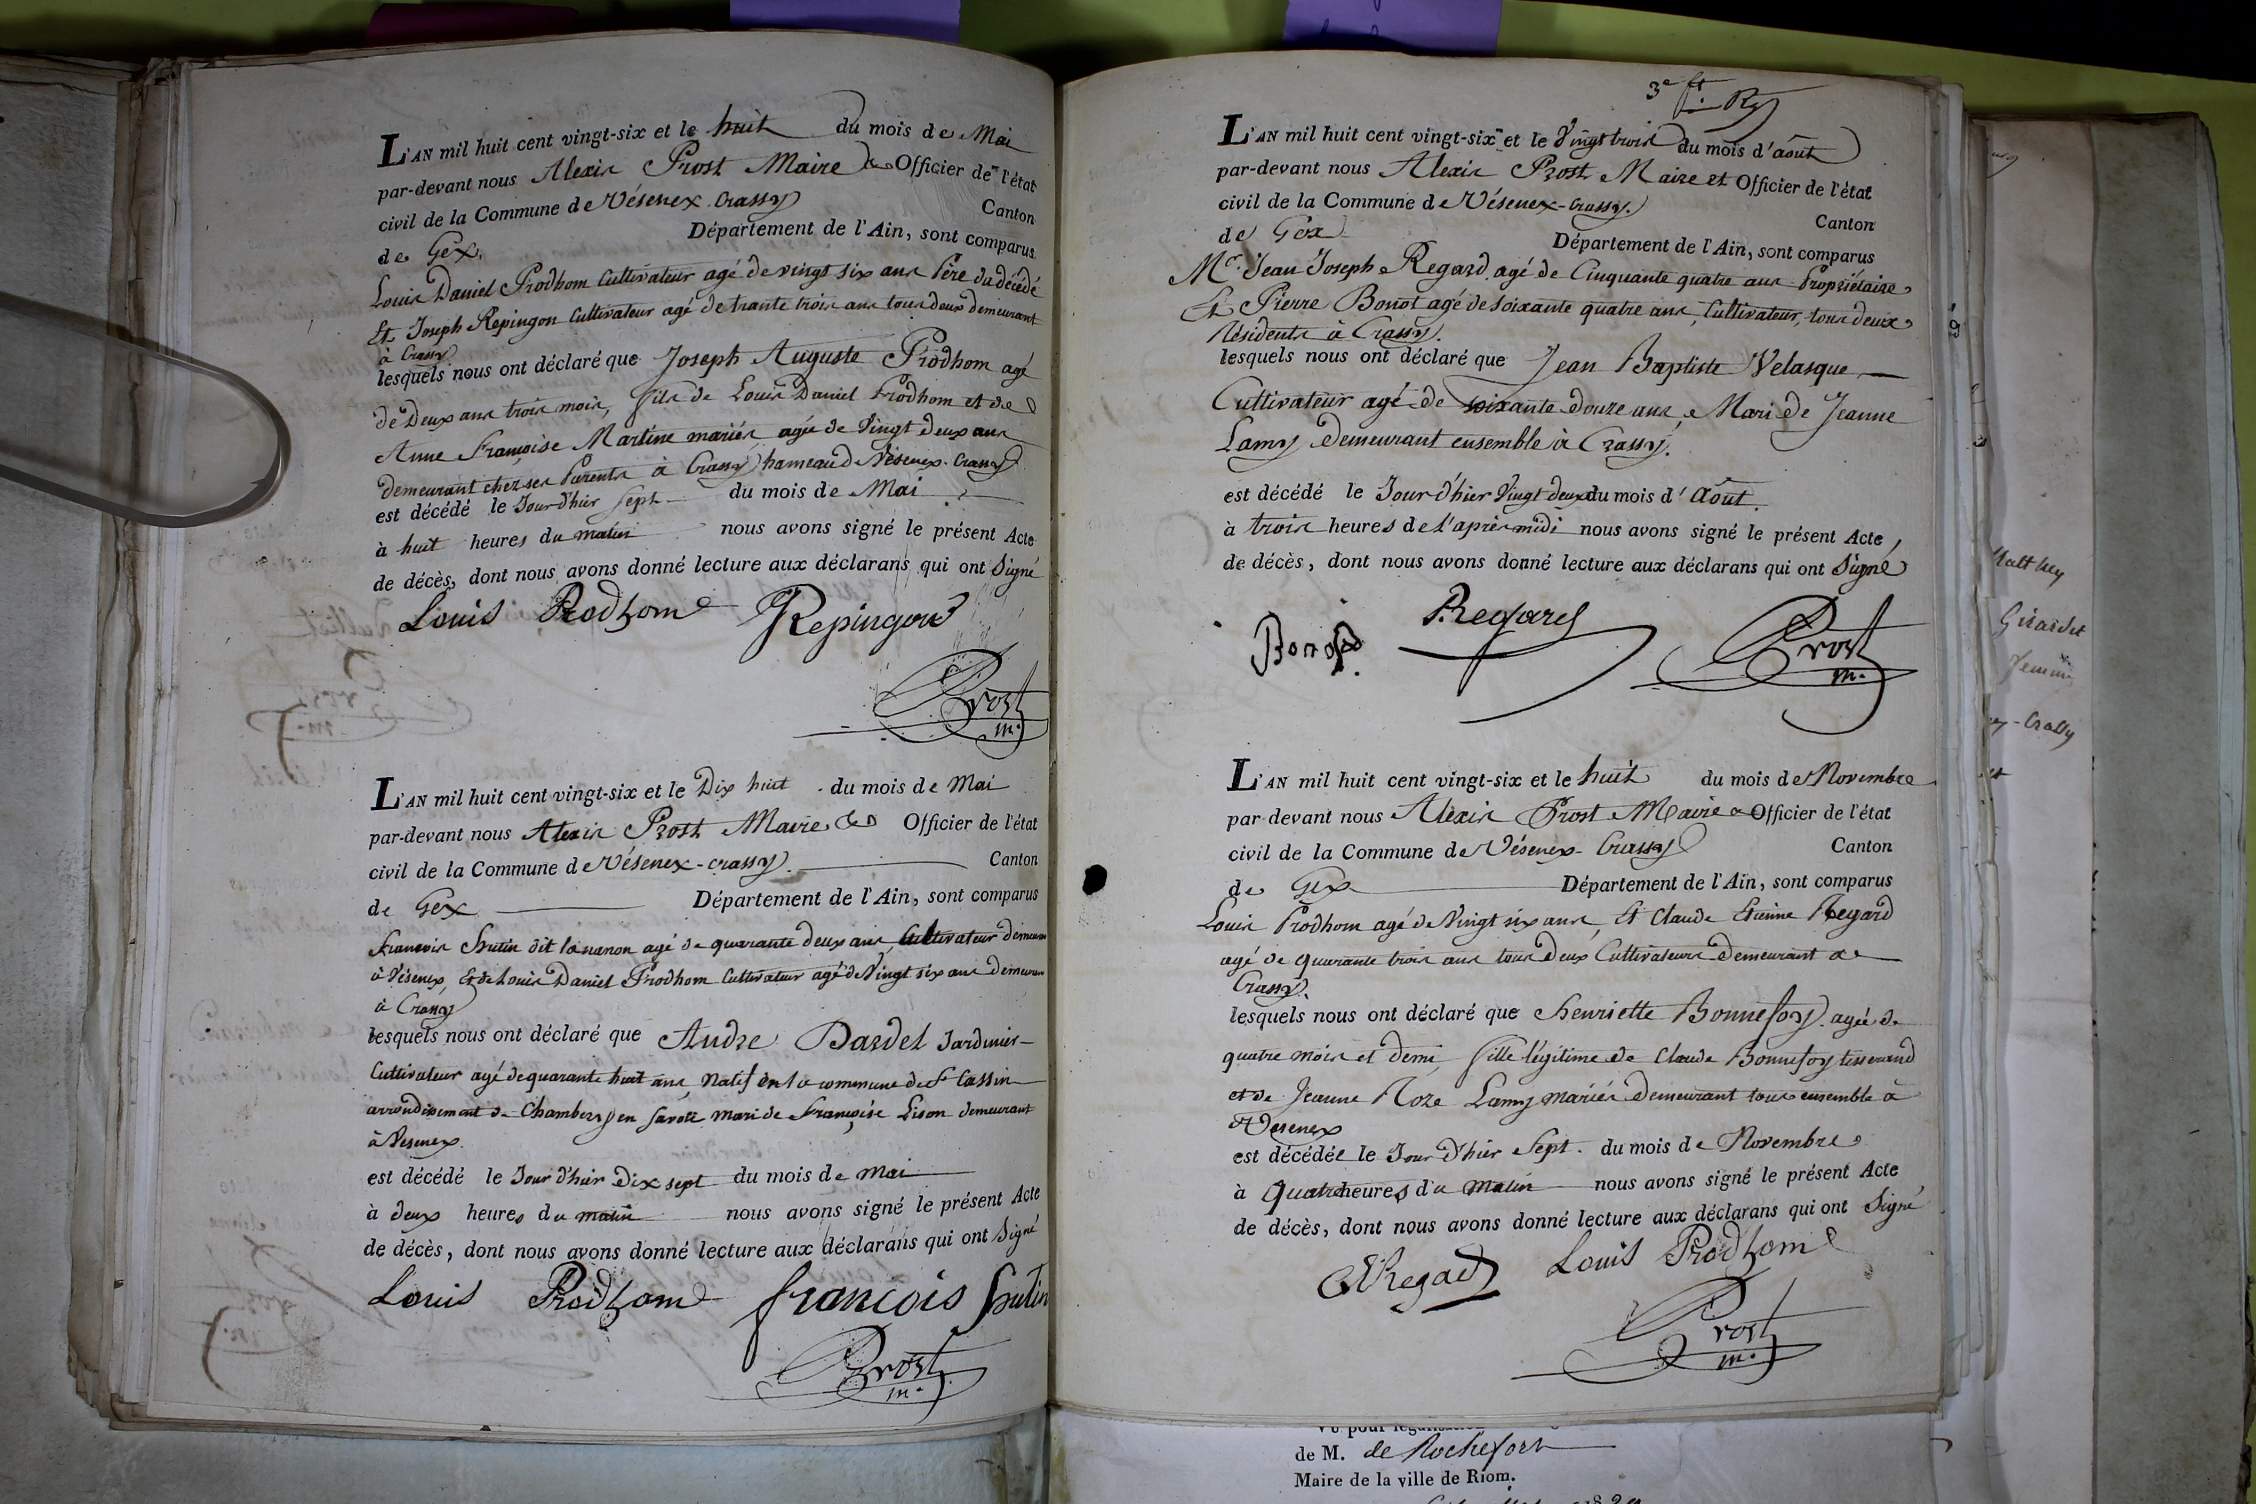 L'AN mil huit cent vingt-six et le huit du mois de Mai
par-devant nous Alexis Prost Maire & Officier de l'état
civil de la Commune de Vésenex-Crassy Canton
de Gex. Département de l'Ain, sont comparus
Louis Daniel Prodhom Cultivateur agé de vingt six ans Père du décédé
Et Joseph Repingon Cultivateur agé de trante trois ans tous deux demeurant
à Crassy
lesquels nous ont déclaré que Joseph Auguste Prodhom agé
de Deux ans trois mois, fils de Louis Daniel Prodhom et de
Anne Françoise Martine mariés agée de Vingt deux ans
demeurant chez ses Parents à Crassy hameau de Vésenex-Crassy
est décédé le Jour d'hier Sept du mois de Mai
à huit heures du matin nous avons signé le présent Acte
de décès, dont nous avons donné lecture aux déclarans qui ont Signé
Louis Prodhom Repingon
Prost
m.
L'AN mil huit cent vingt-six et le Dix huit du mois de Mai
par-devant nous Alexis Prost Maire & Officier de l'état
civil de la Commune de Vésenex-crassy. Canton
de Gex Département de l'Ain, sont comparus
francois hutin dit lananon agé de quarante deux ans, Cultivateur demeurant
à Vésenex, Et de Louis Daniel Prodhom Cultivateur agé de Vingt six ans demeurant
à Crassy
lesquels nous ont déclaré que Andre Dardel Jardinier
Cultivateur agé de quarante huit ans, Natif de la commune de St Cassin
arrondisement de Chambery en Savoie mari de Françoise Lison demeurant
à Vesenex
est décédé le Jour d'hier Dix sept du mois de Mai
à deux heures du matin nous avons signé le présent Acte
de décès, dont nous avons donné lecture aux déclarans qui ont Signé
Louis Prodhom francois hutin
Prost
m.
3e ft.
L'AN mil huit cent vingt-six et le Vingt trois du mois d'août
par-devant nous Alexis Prost Maire et Officier de l'état
civil de la Commune de Vésenex-Crassy. Canton
de Gex Département de l'Ain, sont comparus
Mr. Jean Joseph Regard agé de Cinquante quatre ans Propriétaire
Et Pierre Bonot agé de soixante quatre ans, Cultivateur, tous deux
Résidents à Crassy.
lesquels nous ont déclaré que Jean Baptiste Velasque
Cultivateur agé de soixante douze ans, Mari de Jeanne
Lamy demeurant ensemble à Crassy.
est décédé le Jour d'hier Vingt deux du mois d'Août.
à trois heures de l'après midi nous avons signé le présent Acte
de décès, dont nous avons donné lecture aux déclarans qui ont Signé
Bonot Regard Prost
m.
L'AN mil huit cent vingt-six et le huit du mois de Novembre
par devant nous Alexis Prost Maire & Officier de l'état
civil de la Commune de Vésenex-Crassy Canton
de Gex Département de l'Ain, sont comparus
Louis Prodhom agé de Vingt six ans, Et Claude Etienne Regard
agé de quarante trois ans tous deux Cultivateurs demeurant a
Crassy.
lesquels nous ont déclaré que henriette Bonnefoy agée de
quatre mois et demi, fille légitime de Claude Bonnefoy tisserand
et de Jeanne Roze Lamy mariés demeurant tous ensemble à
Vesenex
est décédée le Jour d'hier Sept. du mois de Novembre
à Quatre heures du matin nous avons signé le présent Acte
de décès, dont nous avons donné lecture aux déclarans qui ont Signé
Regard Louis Prodhom
Prost
m.
Malthey
Girardet
-Crassy
de M. de Rochefort
Maire de la ville de Riom.